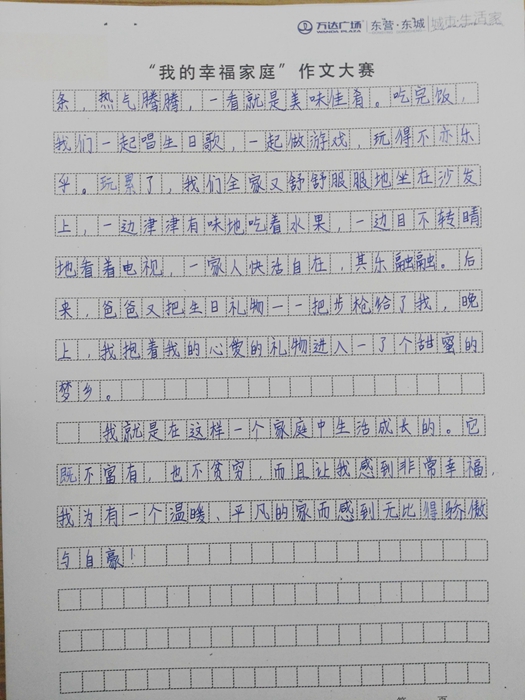 万达广场 WANDA PLAZA 东营·东城 城市·生活家
“我的幸福家庭”作文大赛
条，热气腾腾，一看就是美味佳肴。吃完饭，
我们一起唱生日歌，一起做游戏，玩得不亦乐
乎。玩累了，我们全家又舒舒服服地坐在沙发
上，一边津津有味地吃着水果，一边目不转睛
地看着电视，一家人快活自在，其乐融融。后
来，爸爸又把生日礼物一一把步枪给了我，晚
上，我抱着我的心爱的礼物进入一了个甜蜜的
梦乡。
我就是在这样一个家庭中生活成长的。它
既不富有，也不贫穷，而且让我感到非常幸福，
我为有一个温暖、平凡的家而感到无比得骄傲
与自豪！